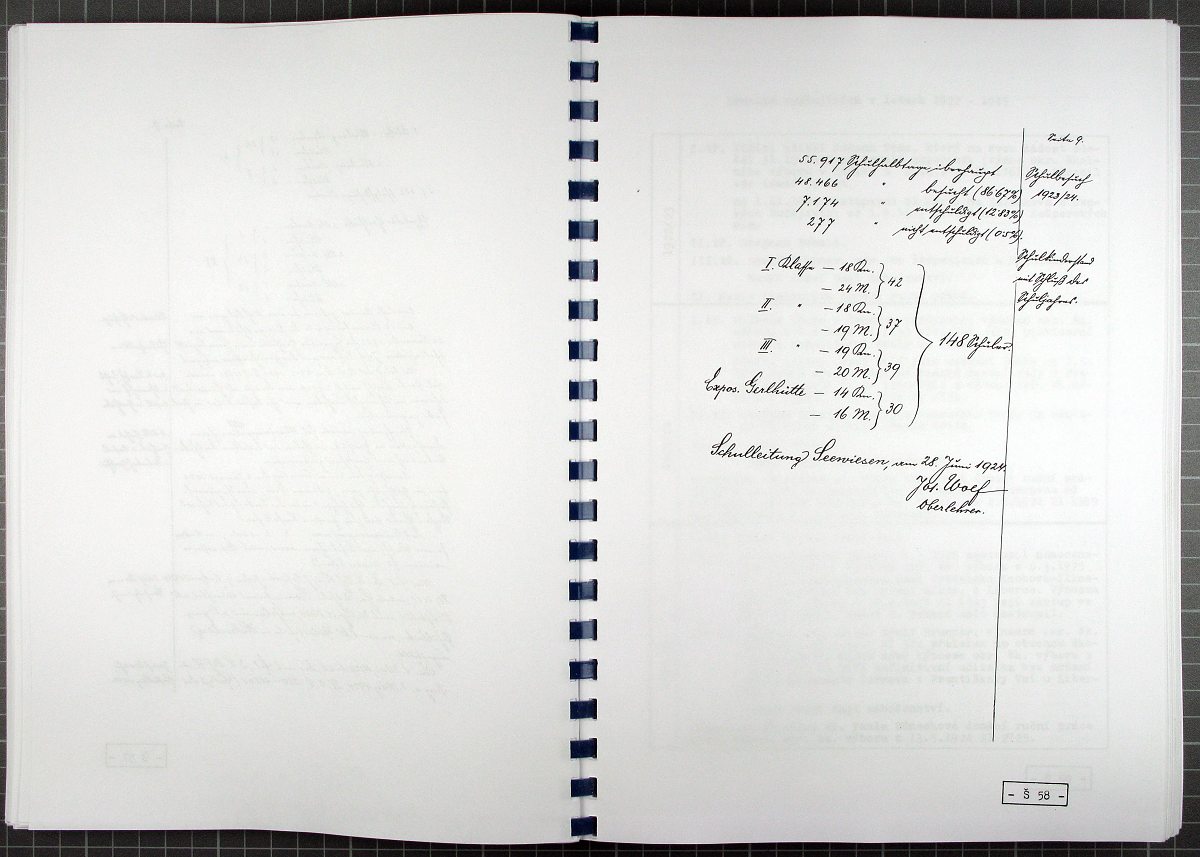 Seite 9.
55.917 Schulhalbtage überhaupt
48.466 " besucht (86·67%)
7.174 " entschuldigt (12·83%)
277 " nicht entschuldigt (0·5%).
Schulbesuch
1923/24.
I. Klasse – 18 Kn.
– 24 M. } 42
II. " – 18 Kn.
– 19 M. } 37
III. " – 19 Kn.
– 20 M. } 39
Expos. Gerlhütte – 14 Kn.
– 16 M. } 30
148 Schüler.
Schulkinderstand
mit Schluß des
Schuljahres.
Schulleitung Seewiesen, am 28. Juni 1924.
Jos. Wolf
Oberlehrer.
- Š 58 -